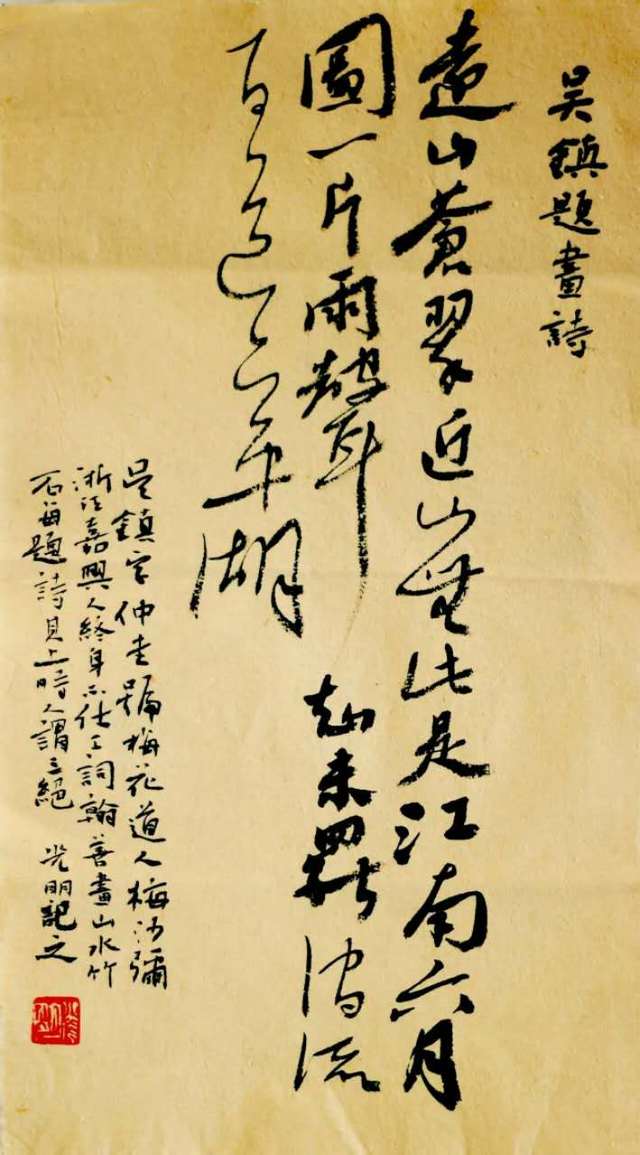 吳鎮題畫詩
遠山蒼翠近山無此是江南六月
圖一片雨聲知未罷澗流
百道下平湖
吳鎮字仲圭號梅花道人梅沙彌
浙江嘉興人終身不仕工詞翰善畫山水竹
石每題詩其上時人謂三絕 光明記之